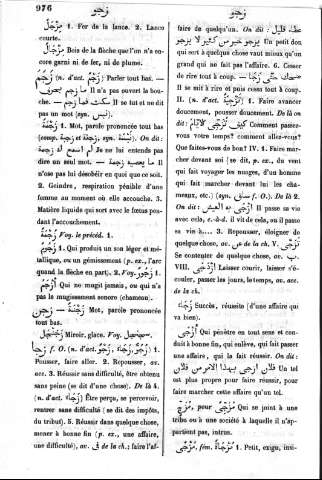 976
زجو
زجو
مزجل 1. Fer de la lance. 2. Lance
courte.
مزجال Bois de la flèche que l'on n'a en-
core garni ni de fer, ni de plume.
زجم (n. d'act. زجم) Parler tout bas. —
Il n'a pas ouvert la bou-
che. — سكت فما زجم Il se tut et ne dit
pas un mot (syn. نبس).
زجمة 1. Mot, parole prononcée tout bas
(comp. زجمة et syn. نبس). On dit:
Je ne lui entends pas
dire un seul mot. — ما يعصيه زجمة Il
n'ose pas lui désobéir en quoi que ce soit.
2. Geindre, respiration pénible d'une
femme au moment où elle accouche. 3.
Matière liquide qui sort avec le fœtus pen-
dant l'accouchement.
زجمة Voy. le précéd. 1.
زجوم 1. Qui produit un son léger et mé-
tallique, ou un gémissement (p. ex., l'arc
quand la flèche en part). 2. Voy.
Qui ne mugit jamais, ou qui n'a
pas le mugissement sonore (chameau).
زجن — Mot, parole prononcée
tout bas.
زجنجل Miroir, glace. Voy. سجنجل.
زجا f. O. (n. d'act. زجو, زجاء) 1.
Pousser, faire aller. 2. Repousser, ac.
acc. 3. Réussir sans difficulté, être obtenu
sans peine (se dit d'une chose). De là 4.
(n. d'act. زجاء) Être perçu, se percevoir,
rentrer sans difficulté (se dit des impôts,
du tribut). 5. Réussir dans quelque chose,
mener à bonne fin (p. ex., une affaire,
une difficulté), av. في de la ch.; faire l'af-
faire de quelqu'un. On dit: عطاء قليل
يزجو خير من كثير لا يزجو Un petit don
qui sort à quelque chose vaut mieux qu'un
grand qui ne fait pas l'affaire. 6. Cesser
de rire tout à coup. — ضحك حتى زجا
Il se mit à rire et puis cessa tout à coup.
II. (n. d'act. تزجية) 1. Faire avancer
doucement, pousser doucement. De là on
dit كيف تزجي الايام Comment passez-
vous votre temps? comment allez-vous?
Que faites-vous de bon? IV. 1. Faire mar-
cher devant soi (se dit, p. ex., du vent
qui fait voyager les nuages, d'un homme
qui fait marcher devant lui les cha-
meaux, etc.) (syn. ساق). De là 2.
On dit, ازجى به العيش Il passe sa vie
avec cela, c.-à-d. il vit de cela, ou il passe
sa vie à.... 3. Repousser, éloigner de
quelque chose, av. عن de la ch. V. تزجى
Se contenter de quelque chose, av. ب.
VIII. ازدجى Laisser courir, laisser s'é-
couler, passer les jours, le temps, av. acc.
de la ch.
زجاء Succès, réussite (d'une affaire qui
va bien).
ازجى Qui pénètre en tout sens et con-
duit à bonne fin, qui enlève, qui fait passer
une affaire, qui la fait réussir. On dit:
فلان ازجى بهذا الامر من فلان Un tel
est plus propre pour faire réussir, pour
faire marcher cette affaire qu'un tel.
مزجى, pour مزج Qui se joint à une
tribu ou à une société à laquelle il n'ap-
partient pas, intrus.
مزجى, fém. مزجاة 1. Petit, exigu, insi-